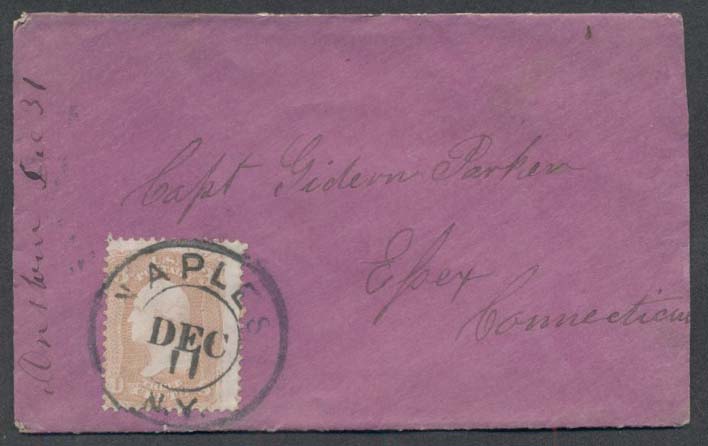 Answer Dec 31
Capt Gideon Parker
Essex
Connecticu
NAPLES
DEC
11
N.Y.